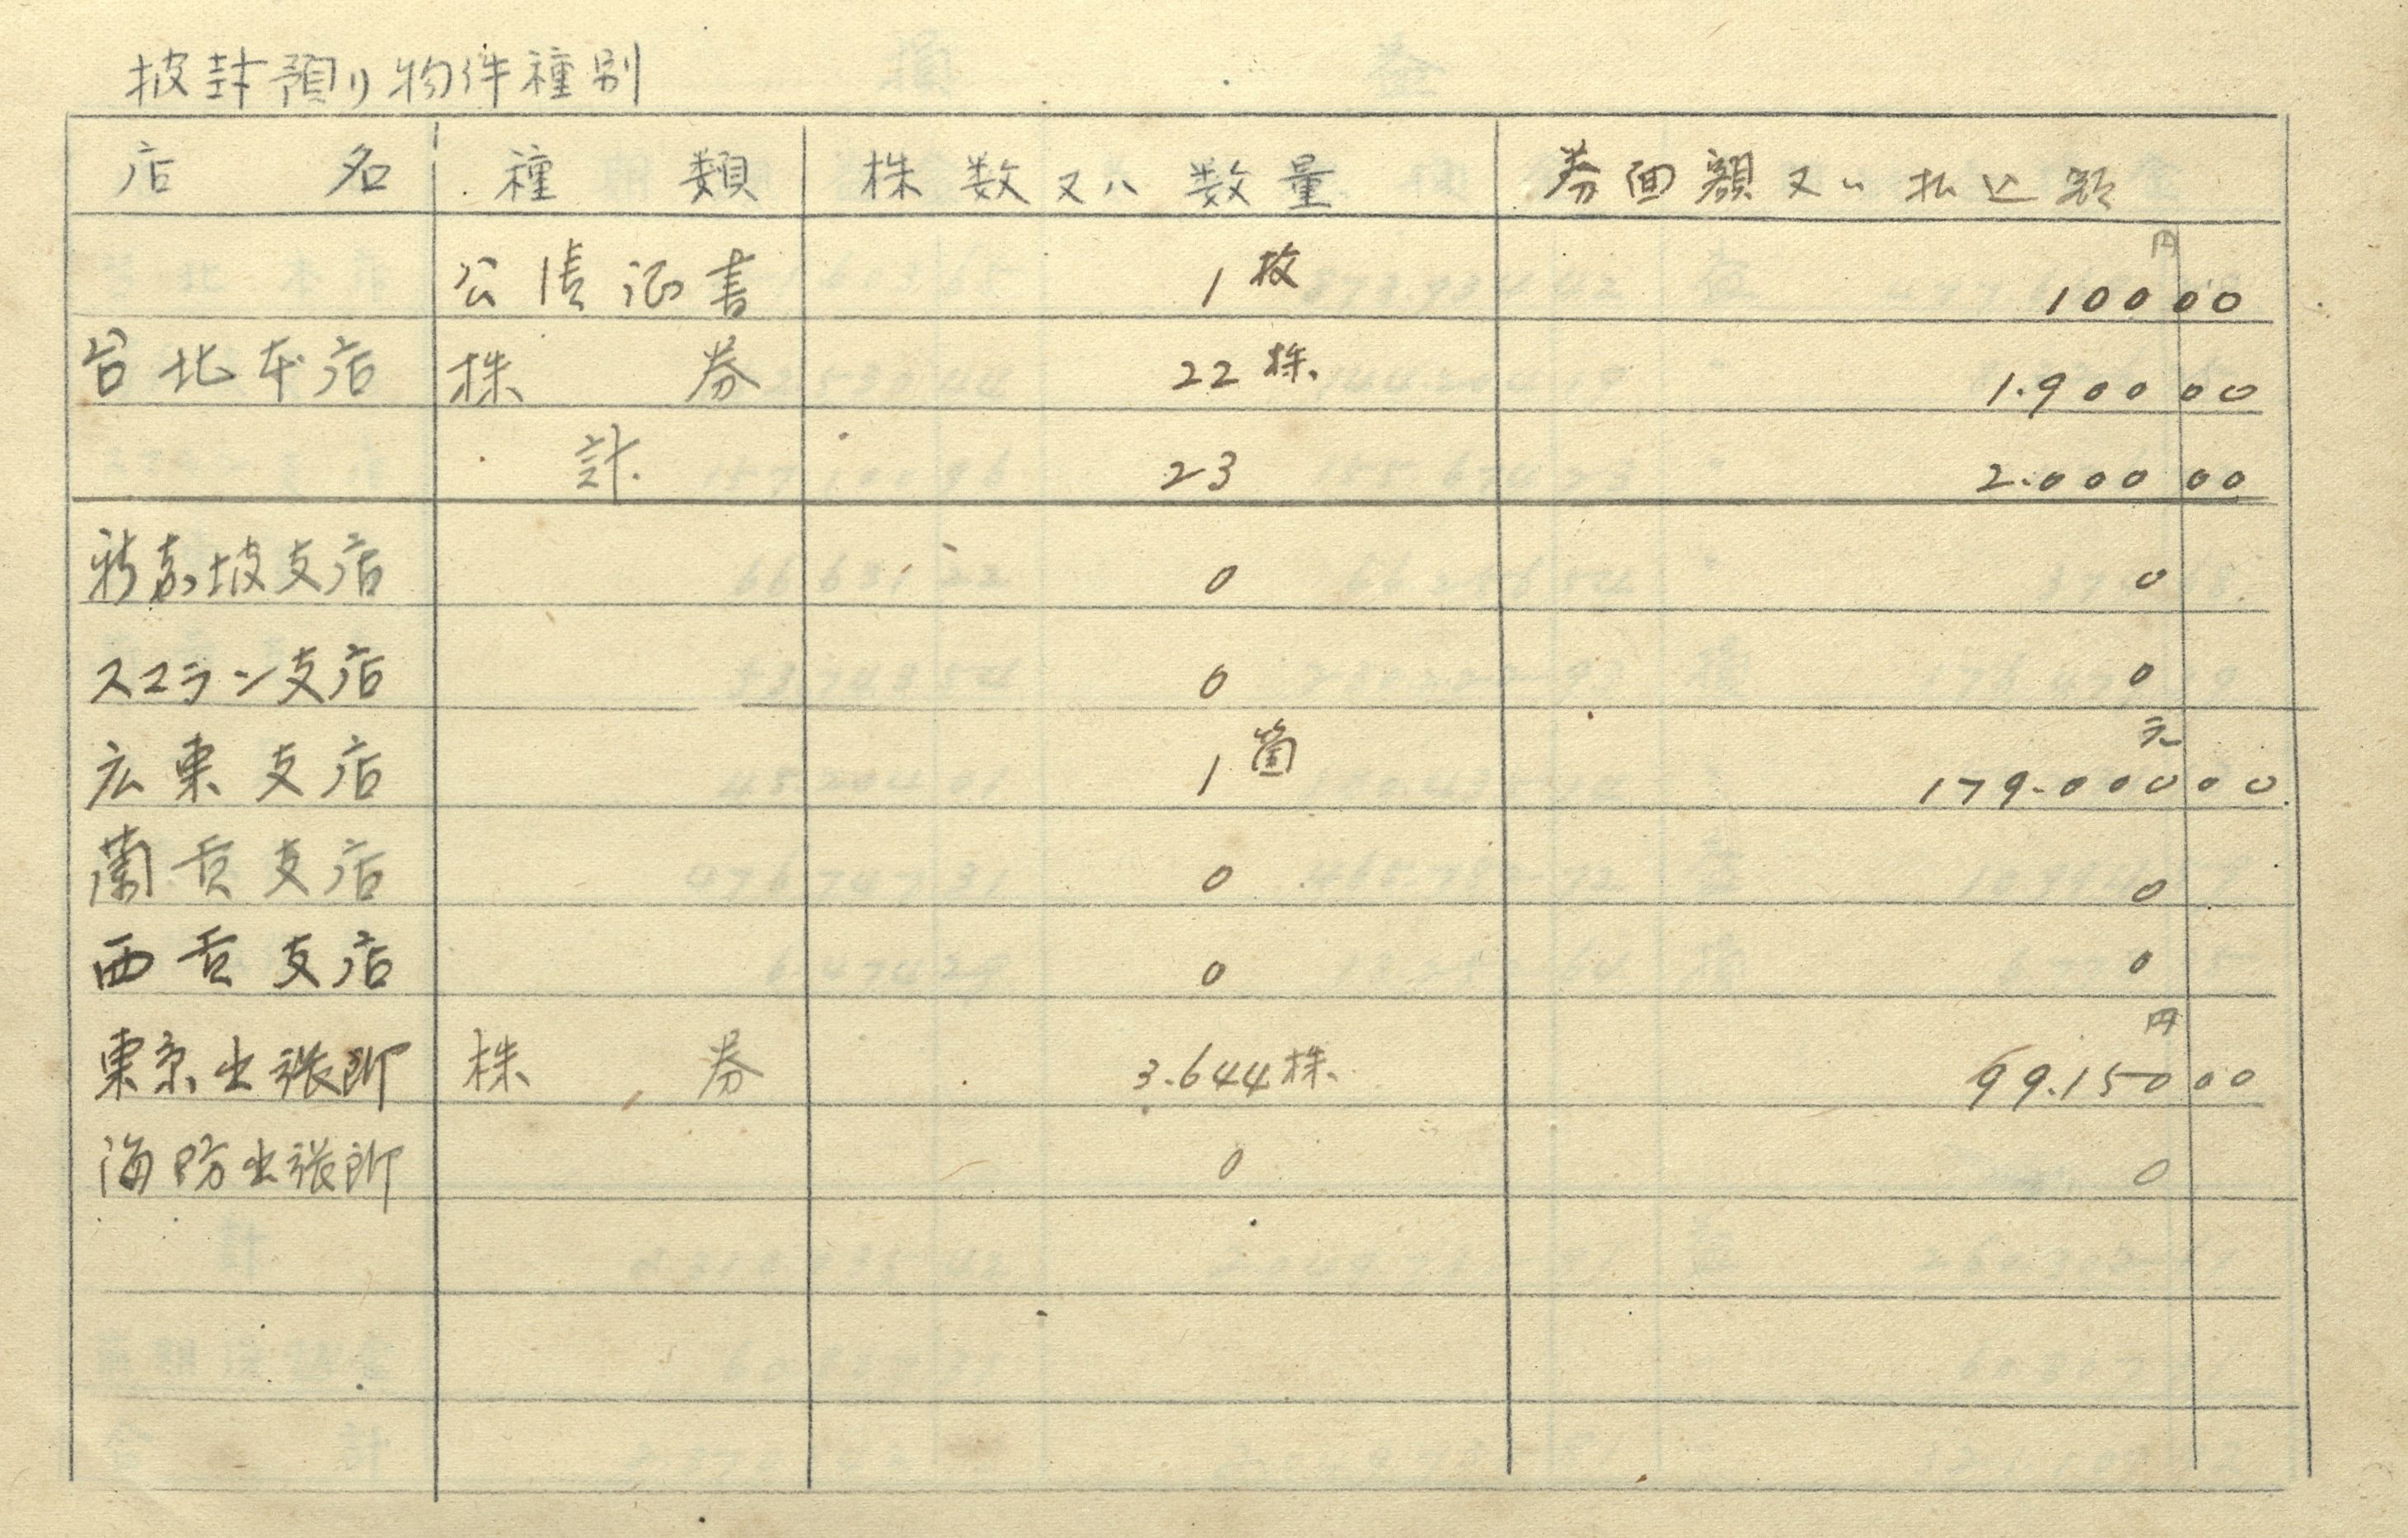 披封預り物件種別
店名 種類 株数又ハ数量 券面額又ハ払込額
公債証書 1枚 円 100 00
台北本店 株券 22株 1.900 00
計 23 2.000 00
新嘉坡支店 0 0
スマラン支店 0 0
広東支店 1箇 元 179.000 00
蘭貢支店 0 0
西貢支店 0 0
東京出張所 株券 3.644株 円 99.150 00
海防出張所 0 0